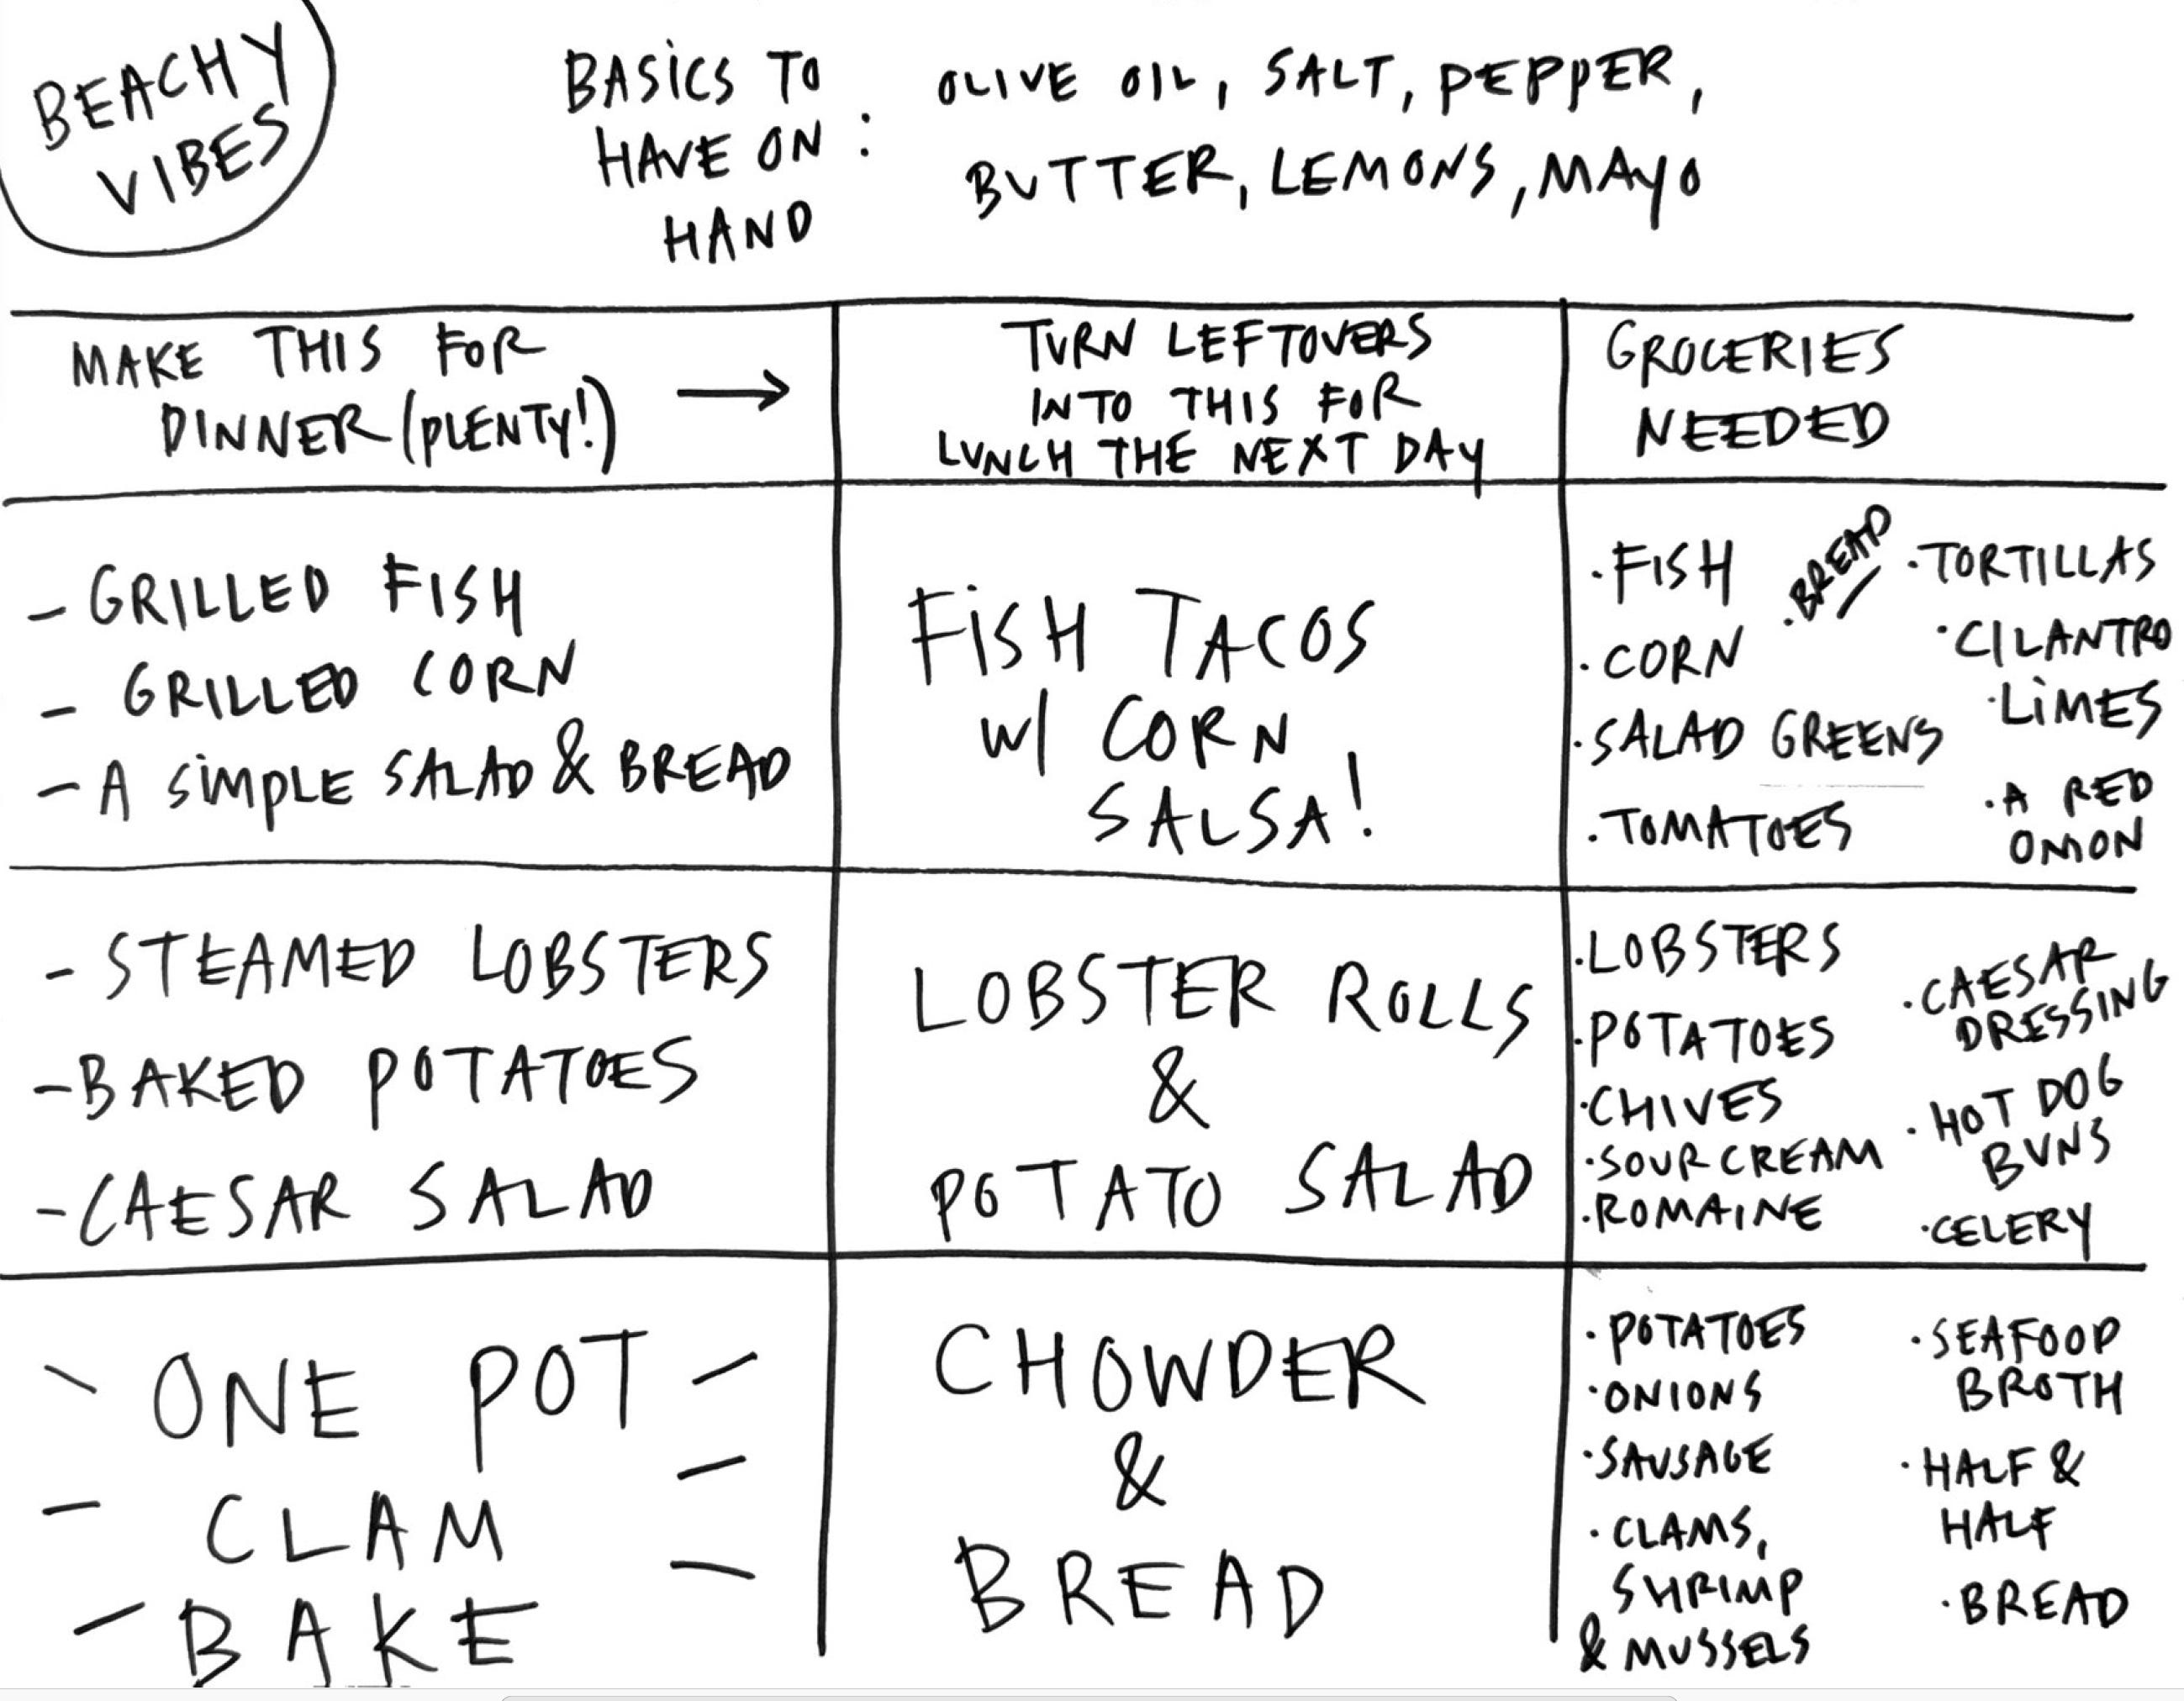 BEACHY
VIBES
BASICS TO
HAVE ON :
HAND
OLIVE OIL, SALT, PEPPER,
BUTTER, LEMONS, MAYO
MAKE THIS FOR
DINNER (PLENTY!) →
TURN LEFTOVERS
INTO THIS FOR
LUNCH THE NEXT DAY
GROCERIES
NEEDED
- GRILLED FISH
- GRILLED CORN
- A SIMPLE SALAD & BREAD
FISH TACOS
W/ CORN
SALSA!
· FISH
· BREAD
· CORN
· SALAD GREENS
· TOMATOES
· TORTILLAS
· CILANTRO
· LIMES
· A RED
ONION
- STEAMED LOBSTERS
- BAKED POTATOES
- CAESAR SALAD
LOBSTER ROLLS
&
POTATO SALAD
· LOBSTERS
· POTATOES
· CHIVES
· SOUR CREAM
· ROMAINE
· CAESAR
DRESSING
· HOT DOG
BUNS
· CELERY
ONE POT
CLAM
BAKE
CHOWDER
&
BREAD
· POTATOES
· ONIONS
· SAUSAGE
· CLAMS,
SHRIMP
& MUSSELS
· SEAFOOD
BROTH
· HALF &
HALF
· BREAD